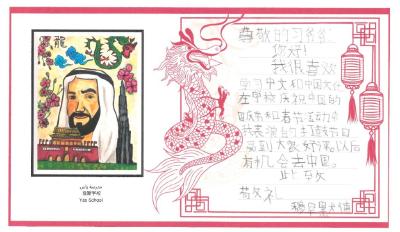 龍
مدرسة ياس
亚斯学校
Yas School
尊敬的习爷爷:
你好!
我很喜欢
学习中文和中国文化
在学校庆祝中国的
国庆节和春节活动中
我表演 节目
受到大家好评。以后
有机会去中国。
此致
敬礼